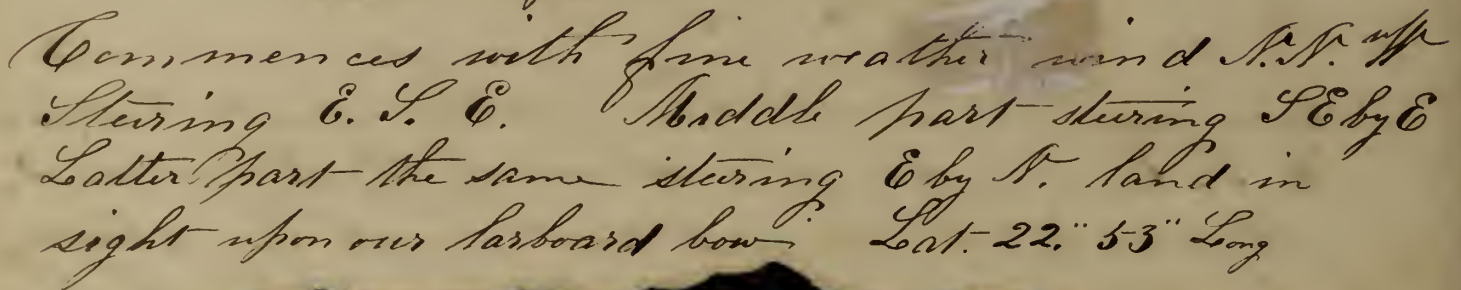 Commences with fine weather wind N.N.W
Steering E. S. E. Middle part steering SE by E
Latter part the same steering E by N. land in
sight upon our larboard bow Lat. 22." 53" Long